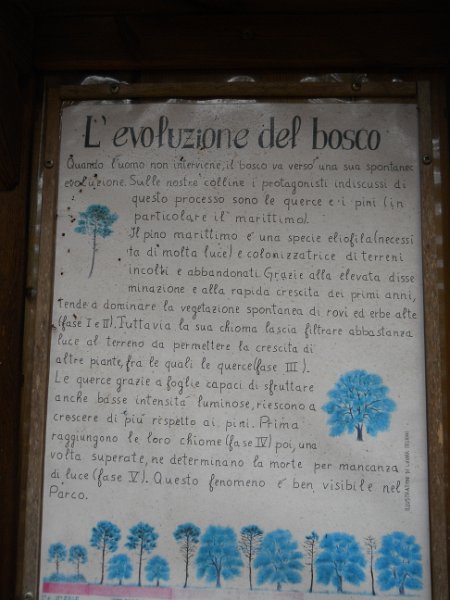 L'evoluzione del bosco
Quando l'uomo non interviene, il bosco va verso una sua spontanea
evoluzione. Sulle nostre colline i protagonisti indiscussi di
questo processo sono le querce e i pini (in
particolare il marittimo).
Il pino marittimo é una specie eliofila (necessi
ta di molta luce) e colonizzatrice di terreni
incolti e abbandonati. Grazie alla elevata disse
minazione e alla rapida crescita dei primi anni,
tende a dominare la vegetazione spontanea di rovi ed erbe alte
(fase I e II). Tuttavia la sua chioma lascia filtrare abbastanza
luce al terreno da permettere la crescita di
altre piante, fra le quali le querce (fase III).
Le querce grazie a foglie capaci di sfruttare
anche basse intensitá luminose, riescono a
crescere di piú rispetto ai pini. Prima
raggiungono le loro chiome (fase IV) poi, una
volta superate, ne determinano la morte per mancanza
di luce (fase V). Questo fenomeno é ben visibile nel
Parco.
ILLUSTRAZIONI DI